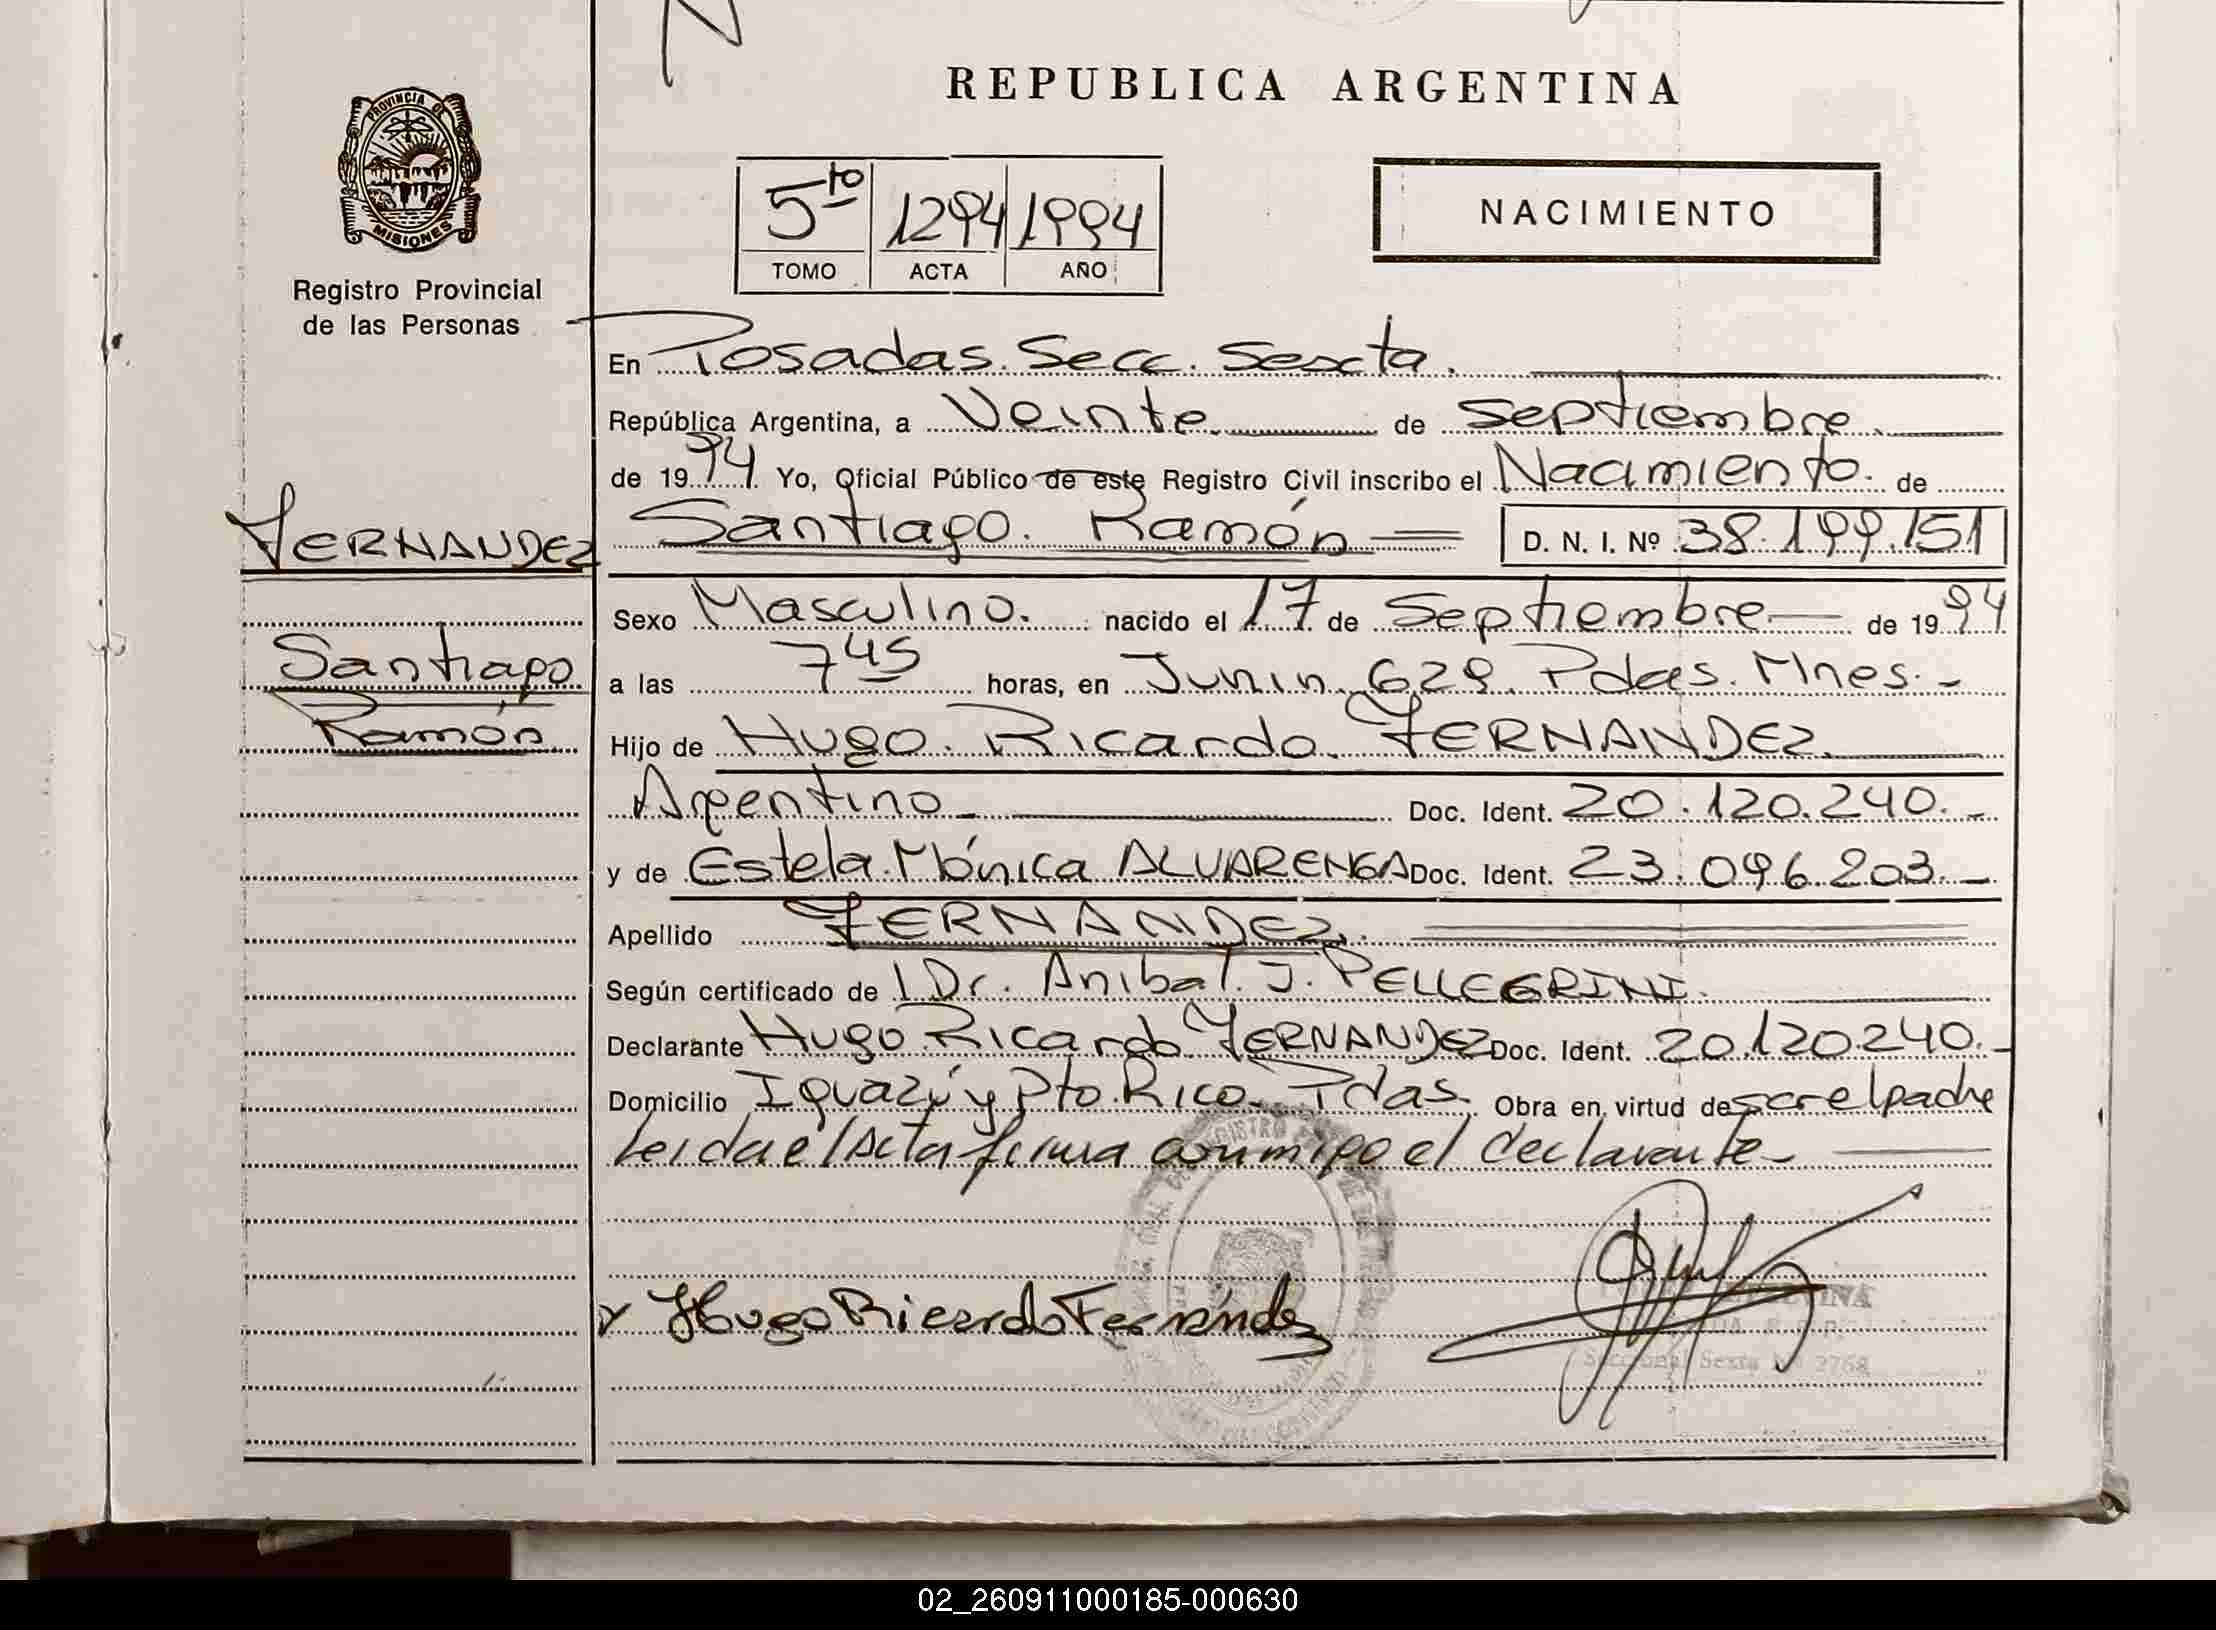 REPUBLICA ARGENTINA
PROVINCIA DE
MISIONES
Registro Provincial
de las Personas
5to 1294 1994
TOMO ACTA AÑO
NACIMIENTO
En Posadas. Secc. Sexta.
República Argentina, a Veinte de septiembre
de 1994 Yo, Oficial Público de este Registro Civil inscribo el Nacimiento. de
FERNANDEZ Santiago. Ramón D. N. I. Nº 38.199.151
Sexo Masculino. nacido el 17 de Septiembre de 1994
Santiago a las 7 45 horas, en Junin. 629. Pdas. Mnes.-
Ramón Hijo de Hugo. Ricardo. FERNANDEZ.
Argentino Doc. Ident. 20.120.240.-
y de Estela. Mónica ALVARENGA Doc. Ident. 23.096.203.-
Apellido FERNANDEZ.
Según certificado de Dr. Anibal. J. PELLEGRINI.
Declarante Hugo Ricardo FERNANDEZ Doc. Ident. 20.120.240.-
Domicilio Iguazú y Pto. Rico. Pdas. Obra en virtud de ser el padre
Leida el Acta firma conmigo el declarante-
Hugo Ricardo Fernández
Seccional Sexta 2768
02_260911000185-000630